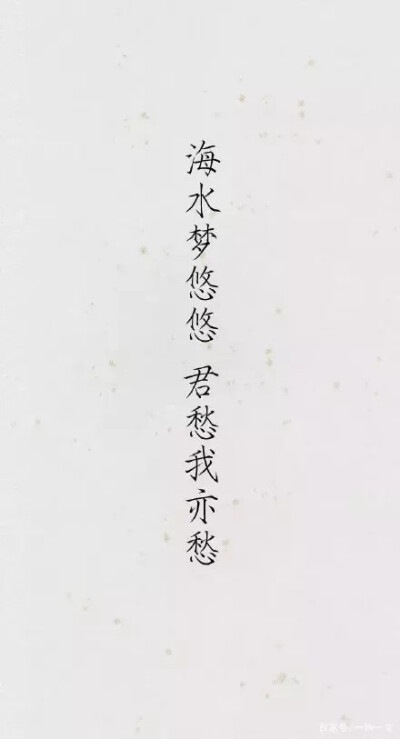 海水梦悠悠 君愁我亦愁